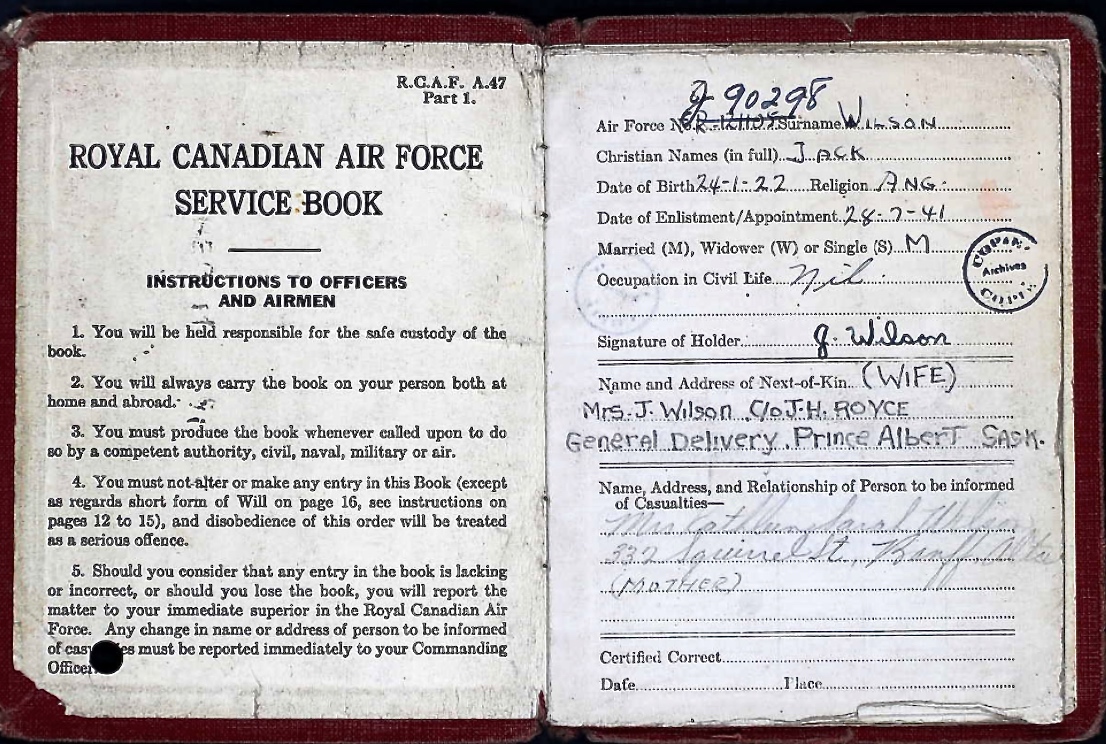 R.C.A.F. A.47
Part 1.
ROYAL CANADIAN AIR FORCE
SERVICE BOOK
INSTRUCTIONS TO OFFICERS
AND AIRMEN
1. You will be held responsible for the safe custody of the
book.
2. You will always carry the book on your person both at
home and abroad.
3. You must produce the book whenever called upon to do
so by a competent authority, civil, naval, military or air.
4. You must not alter or make any entry in this Book (except
as regards short form of Will on page 16, see instructions on
pages 12 to 15), and disobedience of this order will be treated
as a serious offence.
5. Should you consider that any entry in the book is lacking
or incorrect, or should you lose the book, you will report the
matter to your immediate superior in the Royal Canadian Air
Force. Any change in name or address of person to be informed
of must be reported immediately to your Commanding
J 90298
Air Force No. Surname WILSON
Christian Names (in full) JACK
Date of Birth 24-1-22 Religion ANG.
Date of Enlistment/Appointment 28-7-41
Married (M), Widower (W) or Single (S) M
COPIE
Archives
COPIE
Occupation in Civil Life Nil
Signature of Holder J. Wilson
Name and Address of Next-of-Kin (WIFE)
Mrs. J. Wilson C/o J.H. ROYCE
General Delivery. Prince Albert SASK.
Name, Address, and Relationship of Person to be informed
of Casualties—
Mrs Sarah
332 Squirrel St., Banff
(MOTHER)
Certified Correct
Date Place